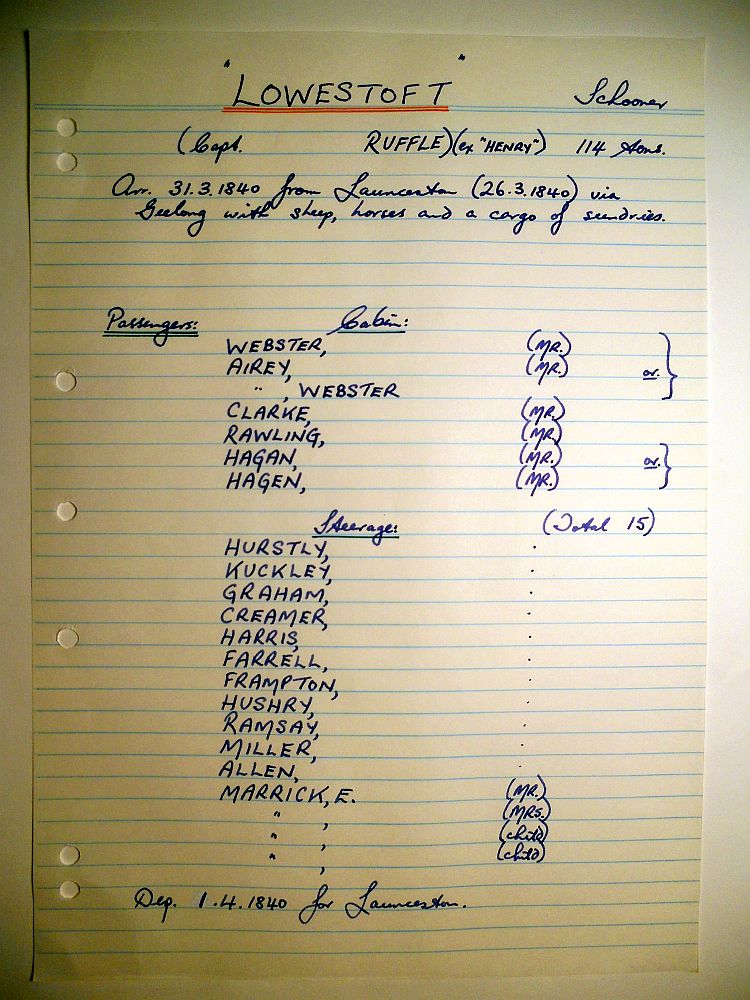 "LOWESTOFT" Schooner
(Capt. RUFFLE) (ex "HENRY") 114 tons.
Arr. 31.3.1840 from Launceston (26.3.1840) via
Geelong with sheep, horses and a cargo of sundries.
Passengers: Cabin:
WEBSTER, (MR.)
AIREY, (MR.) or.
" , WEBSTER
CLARKE, (MR.)
RAWLING, (MR.)
HAGAN, (MR.) or.
HAGEN, (MR.)
Steerage: (Total 15)
HURSTLY, .
KUCKLEY, .
GRAHAM, .
CREAMER, .
HARRIS, .
FARRELL, .
FRAMPTON, .
HUSHRY, .
RAMSAY, .
MILLER, .
ALLEN, .
MARRICK, E. (MR.)
" , (MRS.)
" , (child)
" , (child)
Dep. 1.4.1840 for Launceston.